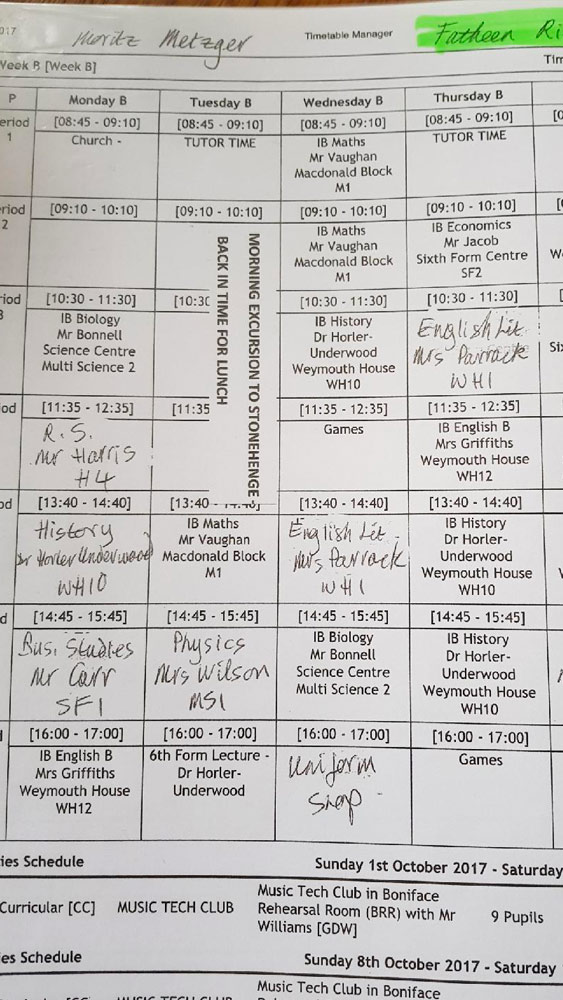 2017
Moritz Metzger
Timetable Manager
Fatheen Ri
Week B [Week B]
Tim
P
Monday B
Tuesday B
Wednesday B
Thursday B
eriod
1
[08:45 - 09:10]
Church -
[08:45 - 09:10]
TUTOR TIME
[08:45 - 09:10]
IB Maths
Mr Vaughan
Macdonald Block
M1
[08:45 - 09:10]
TUTOR TIME
[0
eriod
2
[09:10 - 10:10]
[09:10 - 10:10]
MORNING EXCURSION TO STONEHENGE
BACK IN TIME FOR LUNCH
[09:10 - 10:10]
IB Maths
Mr Vaughan
Macdonald Block
M1
[09:10 - 10:10]
IB Economics
Mr Jacob
Sixth Form Centre
SF2
riod
3
[10:30 - 11:30]
IB Biology
Mr Bonnell
Science Centre
Multi Science 2
[10:30
[10:30 - 11:30]
IB History
Dr Horler-
Underwood
Weymouth House
WH10
[10:30 - 11:30]
English Lit.
Mrs Parrack
WH1
Six
iod
[11:35 - 12:35]
R.S.
Mr Harris
H4
[11:35
[11:35 - 12:35]
Games
[11:35 - 12:35]
IB English B
Mrs Griffiths
Weymouth House
WH12
od
[13:40 - 14:40]
History
Dr Horler Underwood
WH10
[13:40 - 14:40]
IB Maths
Mr Vaughan
Macdonald Block
M1
[13:40 - 14:40]
English Lit.
Mrs Parrack
WH1
[13:40 - 14:40]
IB History
Dr Horler-
Underwood
Weymouth House
WH10
d
[14:45 - 15:45]
Bus. Studies
Mr Carr
SF1
[14:45 - 15:45]
Physics
Mrs Wilson
MS1
[14:45 - 15:45]
IB Biology
Mr Bonnell
Science Centre
Multi Science 2
[14:45 - 15:45]
IB History
Dr Horler-
Underwood
Weymouth House
WH10
[16:00 - 17:00]
IB English B
Mrs Griffiths
Weymouth House
WH12
[16:00 - 17:00]
6th Form Lecture -
Dr Horler-
Underwood
[16:00 - 17:00]
Uniform
[16:00 - 17:00]
Games
ies Schedule
Sunday 1st October 2017 - Saturday
Curricular [CC]
MUSIC TECH CLUB
Music Tech Club in Boniface
Rehearsal Room (BRR) with Mr
Williams [GDW]
9 Pupils
es Schedule
Sunday 8th October 2017 - Saturday
MUSIC TECH CLUB
Music Tech Club in Boniface